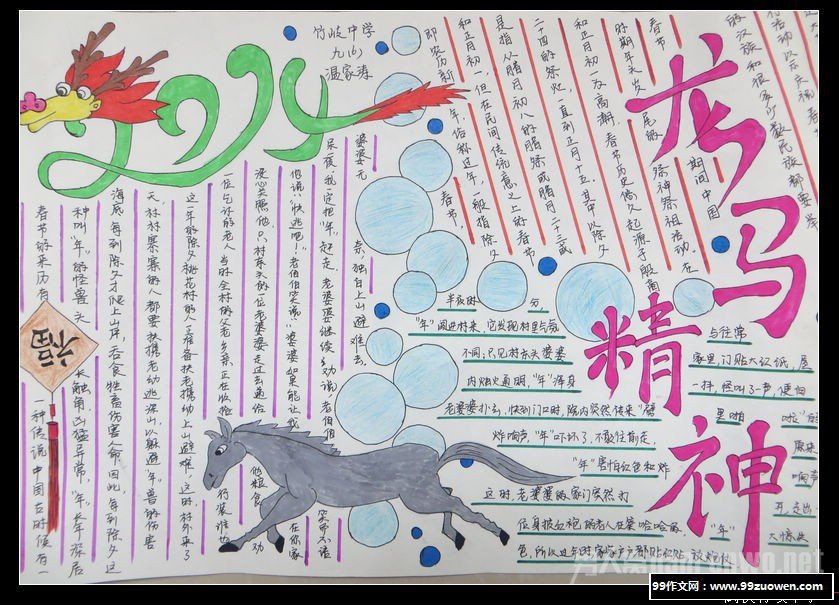 竹岐中学
九(6)
温家涛
2014
龙马精神
福
春节
和正月初一为高潮，春节历史悠久起源于殷商
时期年头岁尾的祭神祭祖活动。在
春节期间中国
的汉族和很多少数民族都要举
二十四的祭灶，一直到正月十五，其中以除夕
是指从腊月初八的腊祭或腊月二十三或
和正月初一，但在民间传统意义上的春节
即农历新年，俗称过年，一般指除夕
春节，
春节的来历有
一种传说，中国古时候有一
种叫“年”的怪兽，头长触角，凶猛异常，“年”长年深居
海底，每到除夕才爬上岸，吞食牲畜伤害人命。因此，每到除夕这
天，村村寨寨的人都要扶老携幼逃往深山，以躲避“年”兽的伤害
这一年的除夕，桃花村的人正准备扶老携幼上山避难，这时村外来了
一位乞讨的老人，当时全村的父老乡亲正在收拾行装谁也
没心关照他，只村东头的一位老婆婆走过去给他粮食，劝
他说：“快逃吧！”老伯伯笑说：“婆婆如果能让我在你家
呆夜，我定把“年”赶走。老婆婆继续劝说，老伯伯笑而不语
婆婆无奈，独自上山避难去。
半夜时分，
“年”闯进村来，它发现村里气氛与往常
不同：只见村东头婆婆家里，门贴大红纸，屋
内烛火通明，“年”浑身一抖，怪叫了一声，便向
老婆婆扑去，快到门口时，院内突然传来“噼里啪啦”的
炸响声，“年”吓坏了，不敢往前走，原来
“年”害怕红色和炸响声
这时，老婆婆的家门突然打开，走出
一位身披红袍的老人在哈哈大笑，“年”大惊失
色，所以过年时家家户户都贴红贴，放炮仗
99作文网：www.99zuowen.com